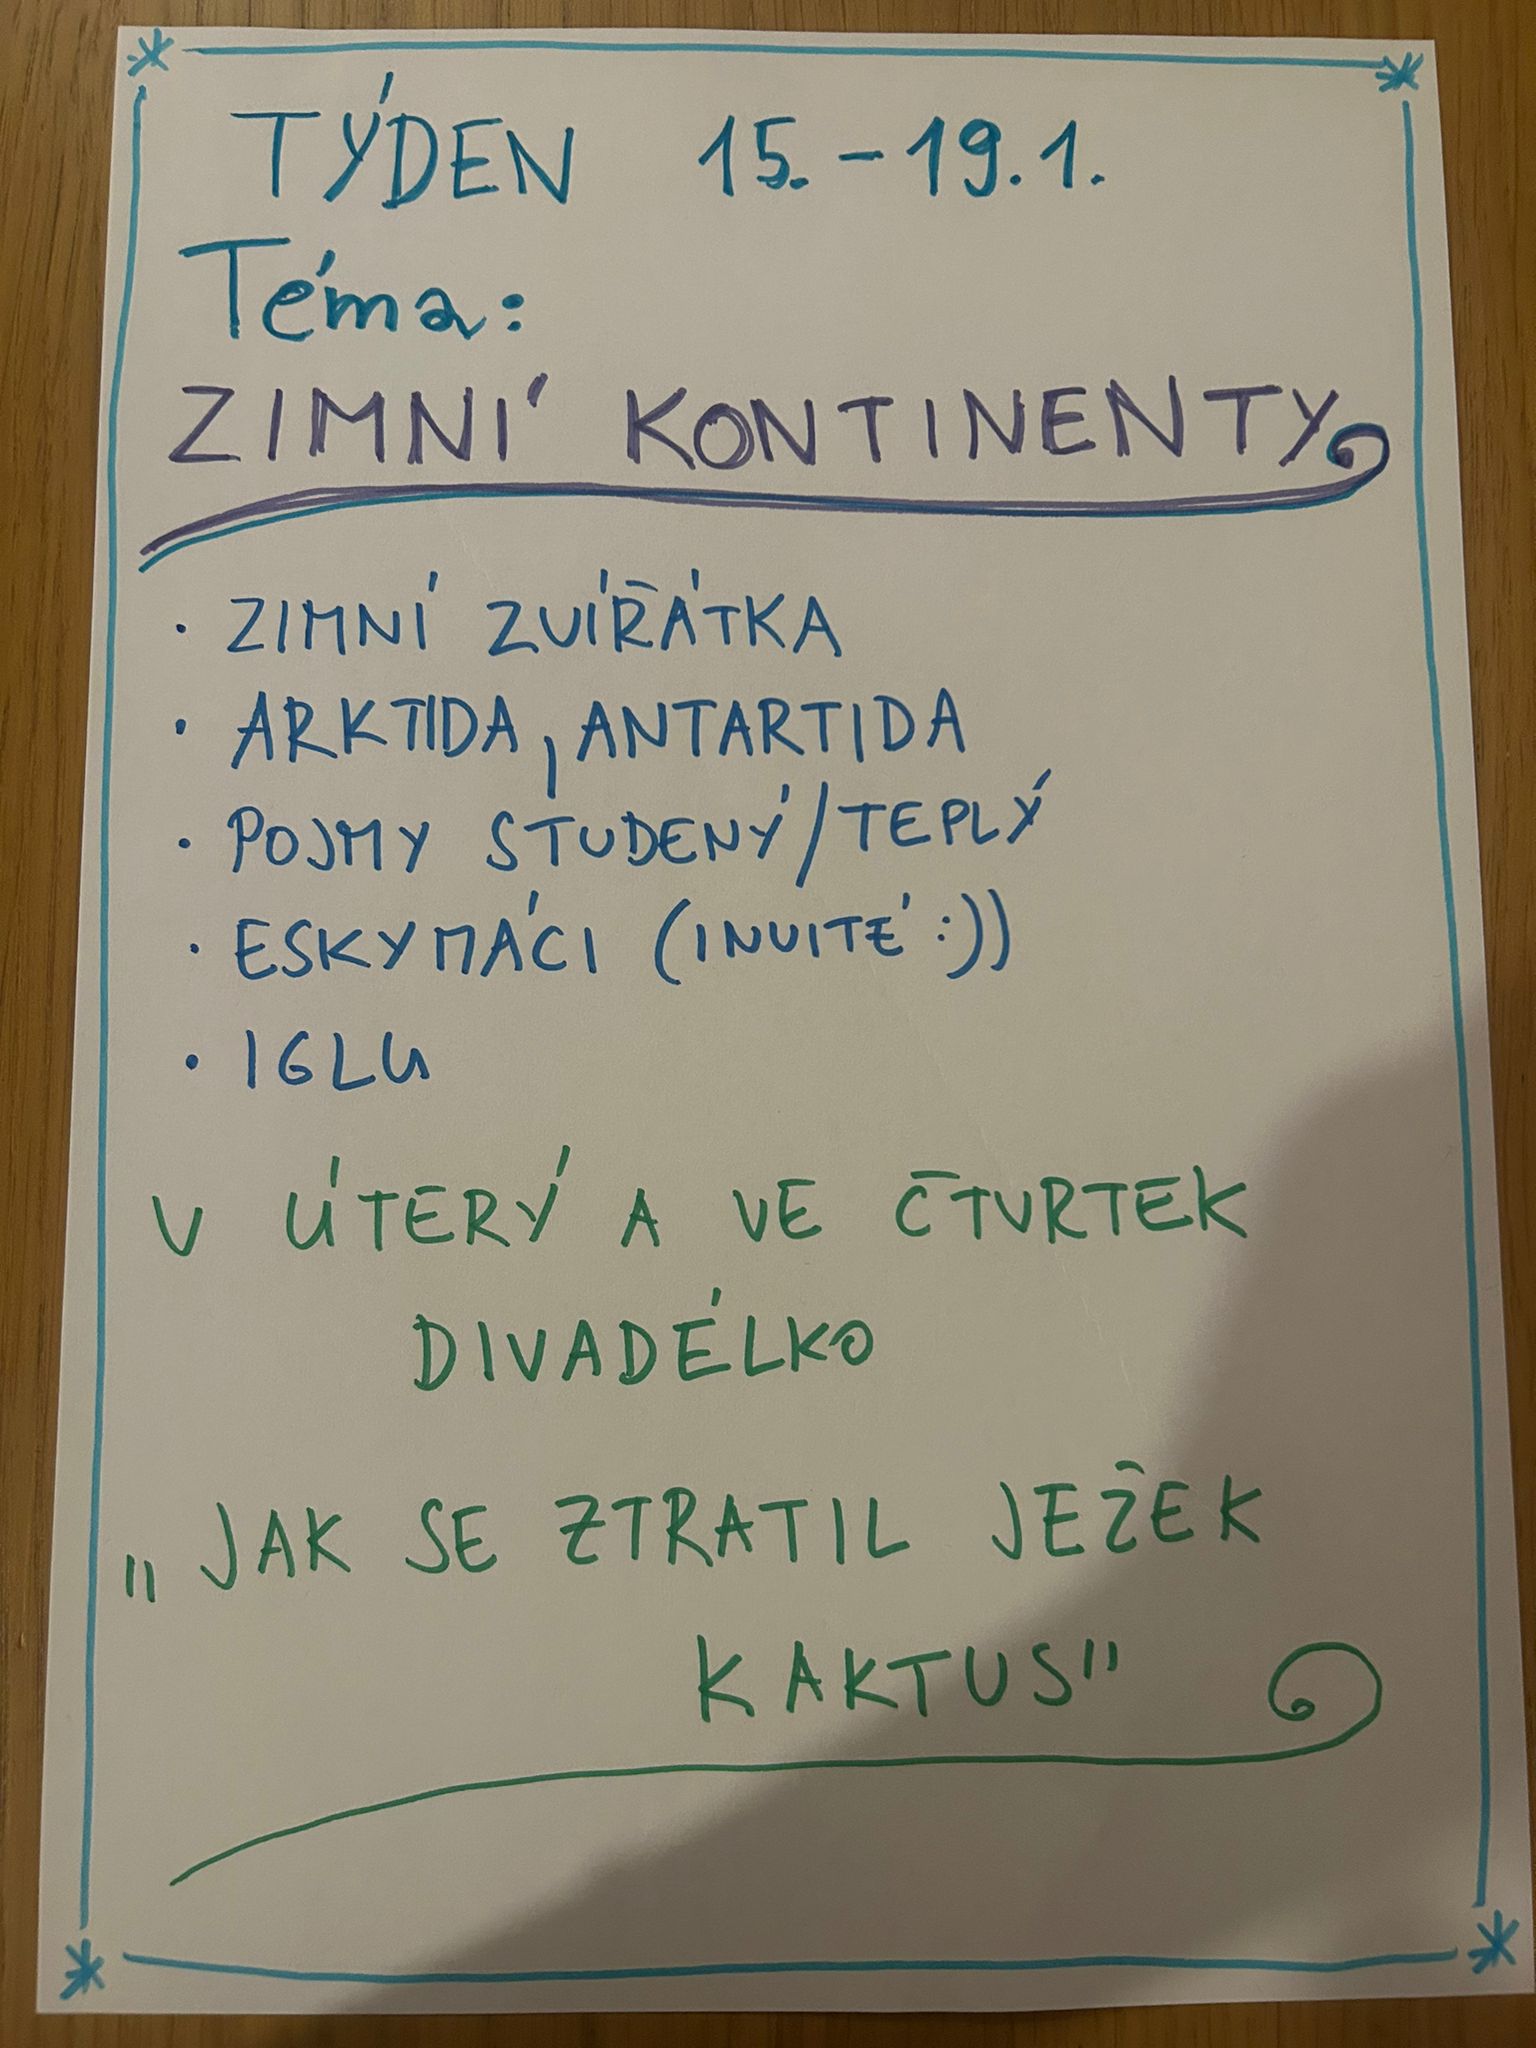 TÝDEN 15.-19.1.
Téma:
ZIMNÍ KONTINENTY
· ZIMNÍ ZVÍŘÁTKA
· ARKTIDA, ANTARTIDA
· POJMY STUDENÝ/TEPLÝ
· ESKYMÁCI (INUITÉ :))
· IGLU
V ÚTERÝ A VE ČTVRTEK
DIVADÉLKO
„JAK SE ZTRATIL JEŽEK
KAKTUS"